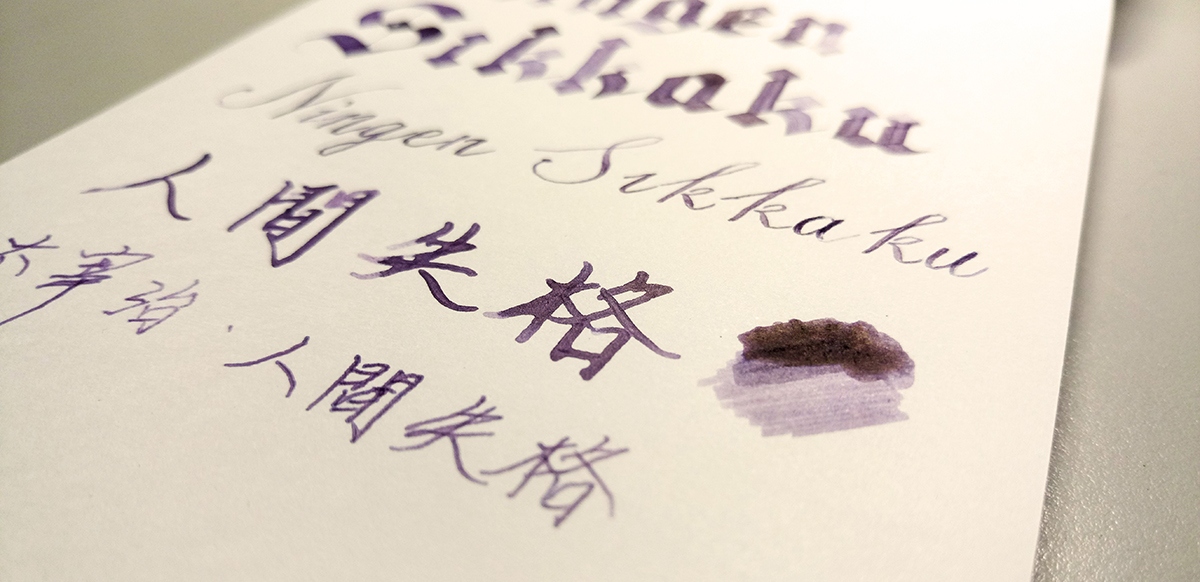 ingen
Sikkaku
Ningen Sikkaku
人間失格
太宰治·人間失格